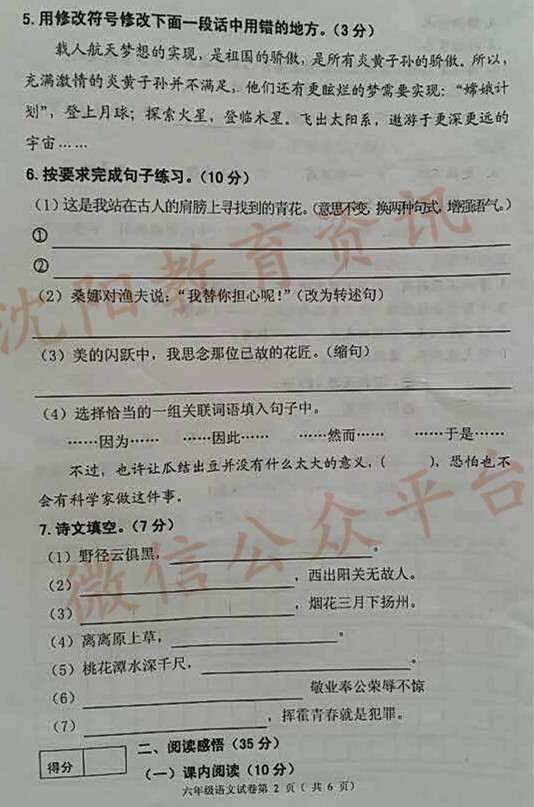 5.用修改符号修改下面一段话中用错的地方。(3分)
载人航天梦想的实现,是祖国的骄傲,是所有炎黄子孙的骄傲。所以,
充满激情的炎黄子孙并不满足,他们还有更眩烂的梦需要实现:“嫦娥计
划”,登上月球;探索火星,登临木星。飞出太阳系,遨游于更深更远的
宇宙……
6.按要求完成句子练习。(10分)
(1)这是我站在古人的肩膀上寻找到的青花。(意思不变,换两种句式,增强语气。)
①
②
(2)桑娜对渔夫说:“我替你担心呢!”(改为转述句)
(3)美的闪跃中,我思念那位已故的花匠。(缩句)
(4)选择恰当的一组关联词语填入句子中。
……因为…… ……因此…… ……然而…… ……于是……
不过,也许让瓜结出豆并没有什么太大的意义,( ),恐怕也不
会有科学家做这件事。
7.诗文填空。(7分)
(1)野径云俱黑, 。
(2) ,西出阳关无故人。
(3) ,烟花三月下扬州。
(4)离离原上草, 。
(5)桃花潭水深千尺, 。
(6) 敬业奉公荣辱不惊
(7) ,挥霍青春就是犯罪。
得分
二、阅读感悟(35分)
(一)课内阅读(10分)
六年级语文试卷第2页(共6页)
沈阳教育资讯
微信公众平台